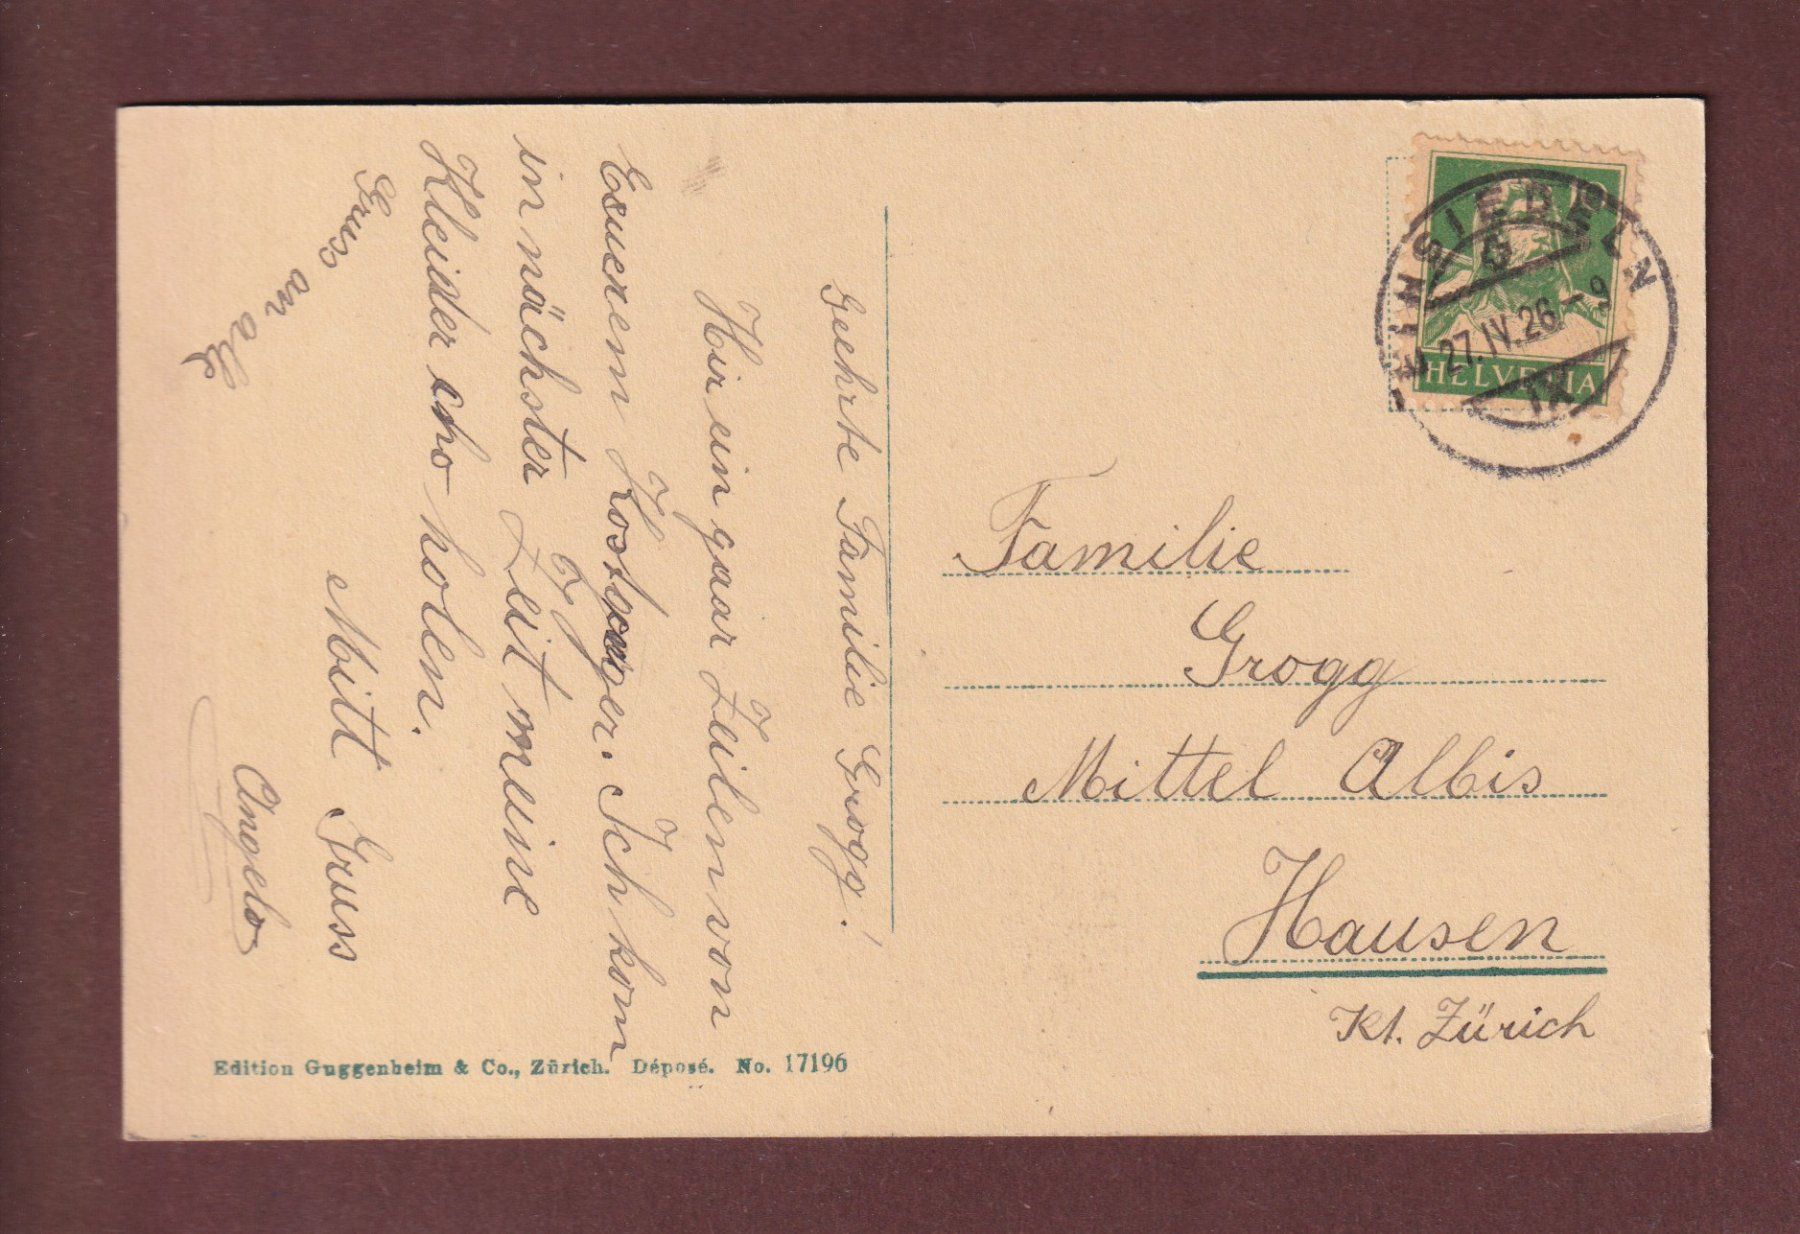 Geehrte Familie Grogg!
Hir ein gaar Zeilen von
Euerem Kostgänger. Ich kom
in nächster Zeit meine
Kleider cho holen.
Mitt Gruss
Angelo
Gruss an alle
Familie
Grogg
Mittel Albis
Hausen
Kt. Zürich
EINSIEDELN
27.IV.26–9
IX
10
HELVETIA
Edition Guggenheim & Co., Zürich. Déposé. No. 17196